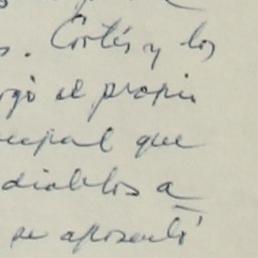 s. Cortés y los
rgó el propio
ncipal que
diablos a
se aposentó